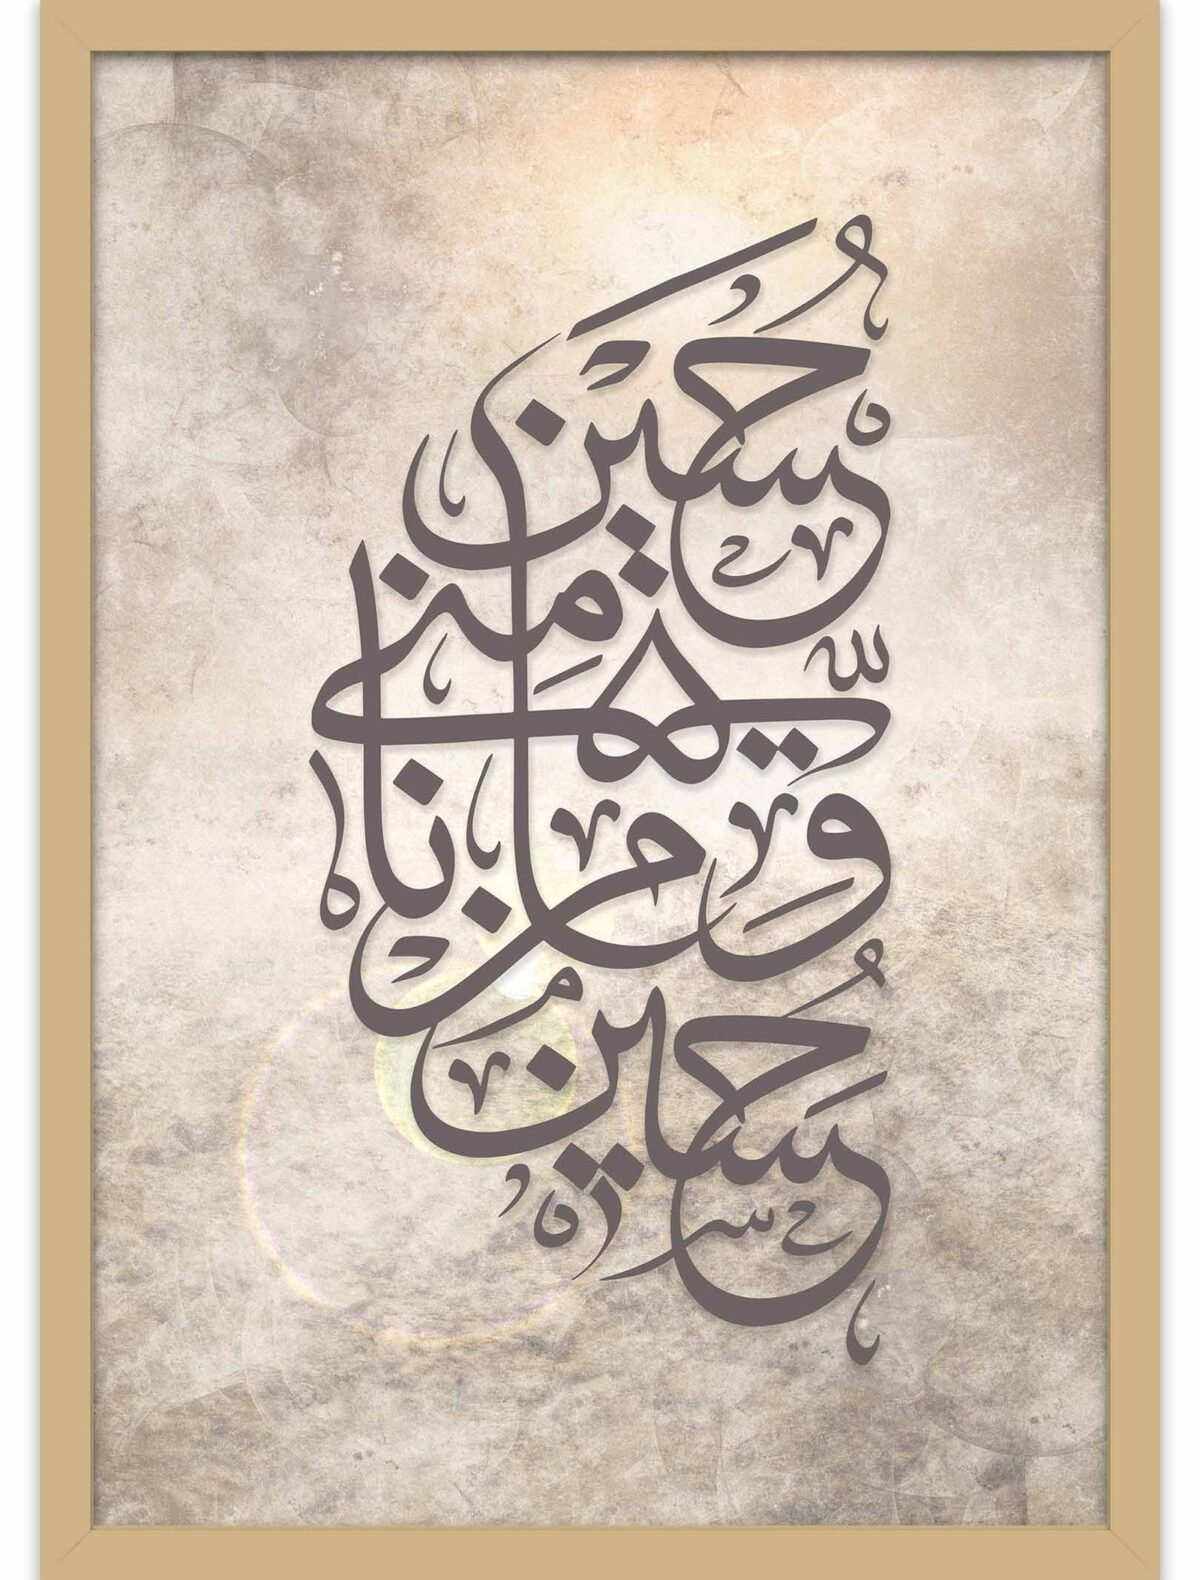 حسين
مني
و انا من
حسين